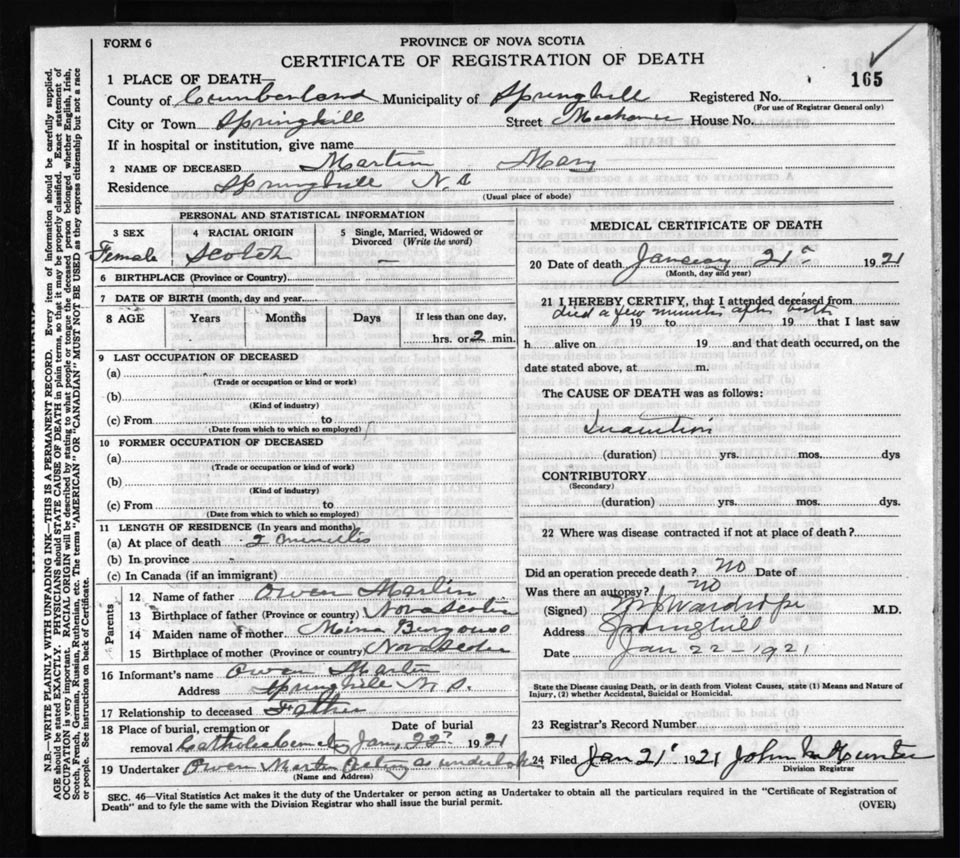 FORM 6
PROVINCE OF NOVA SCOTIA
CERTIFICATE OF REGISTRATION OF DEATH
165
1 PLACE OF DEATH—
County of Cumberland Municipality of Springhill Registered No.
(For use of Registrar General only)
City or Town Springhill Street Mechanic House No.
If in hospital or institution, give name
2 NAME OF DECEASED Martin Mary
Residence Springhill N.S
(Usual place of abode)
PERSONAL AND STATISTICAL INFORMATION
3 SEX 4 RACIAL ORIGIN 5 Single, Married, Widowed or
Divorced (Write the word)
Female Scotch —
6 BIRTHPLACE (Province or Country)
7 DATE OF BIRTH (month, day and year
8 AGE Years Months Days If less than one day,
hrs. or 2 min.
9 LAST OCCUPATION OF DECEASED
(a)
(Trade or occupation or kind or work)
(b)
(Kind of industry)
(c) From to
(Date from which to which so employed)
10 FORMER OCCUPATION OF DECEASED
(a)
(Trade or occupation or kind of work)
(b)
(Kind of industry)
(c) From to
(Date from which to which so employed)
11 LENGTH OF RESIDENCE (In years and months)
(a) At place of death 2 minutes
(b) In province
(c) In Canada (if an immigrant)
Parents
12 Name of father Owen Martin
13 Birthplace of father (Province or country) Nova Scotia
14 Maiden name of mother
15 Birthplace of mother (Province or country) Nova Scotia
16 Informant's name Owen Martin
Address Springhill N.S.
17 Relationship to deceased Father
18 Place of burial, cremation or Date of burial
removal Catholic Cemety Jan, 22nd 1921
19 Undertaker Owen Martin Acting as undertaker
(Name and Address)
MEDICAL CERTIFICATE OF DEATH
20 Date of death January 21st 1921
(Month, day and year)
21 I HEREBY CERTIFY, that I attended deceased from
died a few minutes after birth
19 to 19 that I last saw
h alive on 19 and that death occurred, on the
date stated above, at m.
The CAUSE OF DEATH was as follows:
Inanition
(duration) yrs. mos. dys
CONTRIBUTORY
(Secondary)
(duration) yrs. mos. dys.
22 Where was disease contracted if not at place of death?
Did an operation precede death? No Date of
Was there an autopsy? No
(Signed) Wardrope M.D.
Address Springhill
Date Jan 22 - 1921
State the Disease causing Death, or in death from Violent Causes, state (1) Means and Nature of
Injury, (2) whether Accidental, Suicidal or Homicidal.
23 Registrar's Record Number
24 Filed Jan 21st 1921 John Hunter
Division Registrar
SEC. 46—Vital Statistics Act makes it the duty of the Undertaker or person acting as Undertaker to obtain all the particulars required in the "Certificate of Registration of
Death" and to fyle the same with the Division Registrar who shall issue the burial permit.
(OVER)
N.B.—WRITE PLAINLY WITH UNFADING INK—THIS IS A PERMANENT RECORD. Every item of information should be carefully supplied.
AGE should be stated EXACTLY. PHYSICIANS should STATE CAUSE OF DEATH in plain terms, so that it may be properly classified. Exact statement of
OCCUPATION is very important. RACIAL ORIGIN will be described by stating to what people or tongue the deceased person belonged whether English, Irish,
Scotch, French, German, Russian, Ruthenian, etc. The terms "AMERICAN" OR "CANADIAN" MUST NOT BE USED as they express citizenship but not a race
or people. See instructions on back of Certificate.